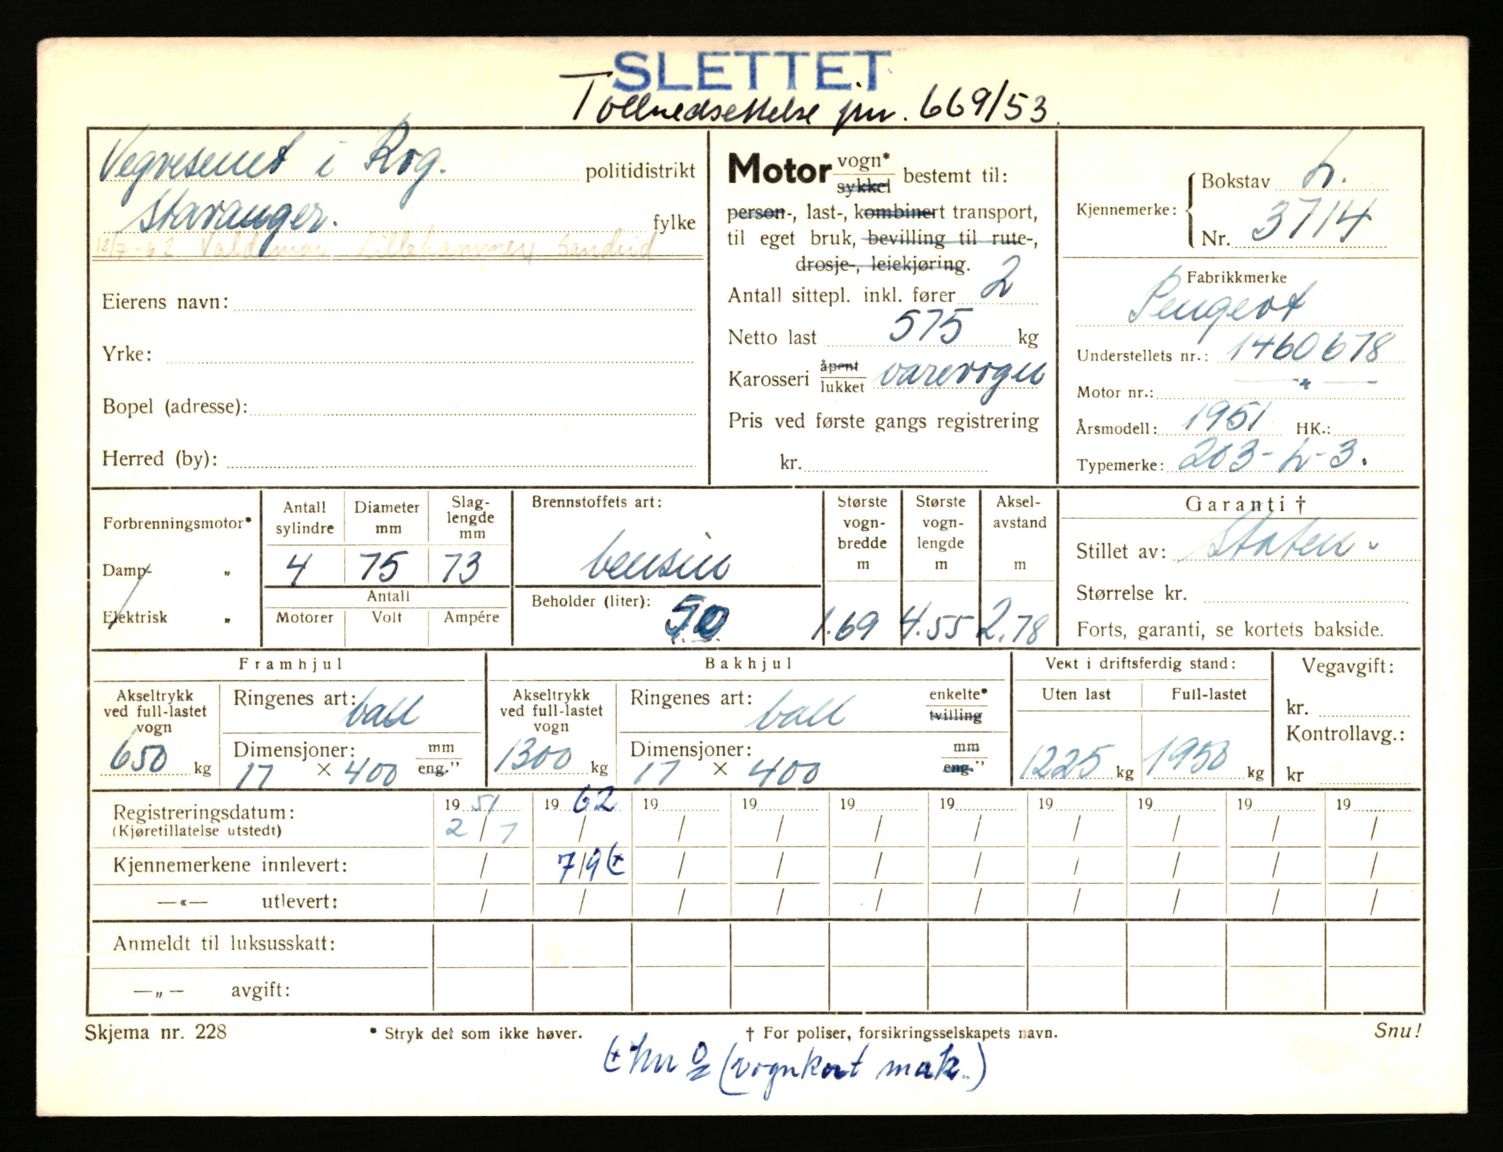 SLETTET
Tollnedsettelse jnr. 669/53.
Vegvesenet i Rog. politidistrikt
Stavanger. fylke
12/7-62 Valdemar Lillehammer, Sandeid
Eierens navn:
Yrke:
Bopel (adresse):
Herred (by):
Motor vogn* sykkel bestemt til:
person-, last-, kombinert transport,
til eget bruk, bevilling til rute-,
drosje-, leiekjøring.
Antall sittepl. inkl. fører 2
Netto last 575 kg
Karosseri åpent lukket varevogn
Pris ved første gangs registrering
kr.
Kjennemerke: Bokstav L.
Nr. 3714
Fabrikkmerke
Peugeot
Understellets nr.: 1460678
Motor nr.: — " —
Årsmodell: 1951 HK.:
Typemerke: 203-L-3.
Forbrenningsmotor*
Damp- "
Elektrisk "
Antall sylindre 4
Diameter mm 75
Slag-lengde mm 73
Antall
Motorer Volt Ampére
Brennstoffets art:
bensin
Beholder (liter): 50
Største vogn-bredde m 1.69
Største vogn-lengde m 4.55
Aksel-avstand m 2.78
Garanti †
Stillet av: Staten.
Størrelse kr.
Forts, garanti, se kortets bakside.
Framhjul
Akseltrykk ved full-lastet vogn 650 kg
Ringenes art: ball
Dimensjoner: 17 × 400 mm eng."
Bakhjul
Akseltrykk ved full-lastet vogn 1300 kg
Ringenes art: ball enkelte* tvilling
Dimensjoner: 17 × 400 mm eng."
Vekt i driftsferdig stand:
Uten last Full-lastet
1225 kg 1950 kg
Vegavgift:
kr.
Kontrollavg.:
kr
Registreringsdatum: 19 51 19 62 19 19 19 19 19 19 19 19
(Kjøretillatelse utstedt) 2/7 / / / / / / / / /
Kjennemerkene innlevert: / 7/9 / / / / / / / /
—«— utlevert: / / / / / / / / / /
Anmeldt til luksusskatt:
—„— avgift:
Skjema nr. 228 * Stryk det som ikke høver. † For poliser, forsikringsselskapets navn. Snu!
(vognkort mak..)